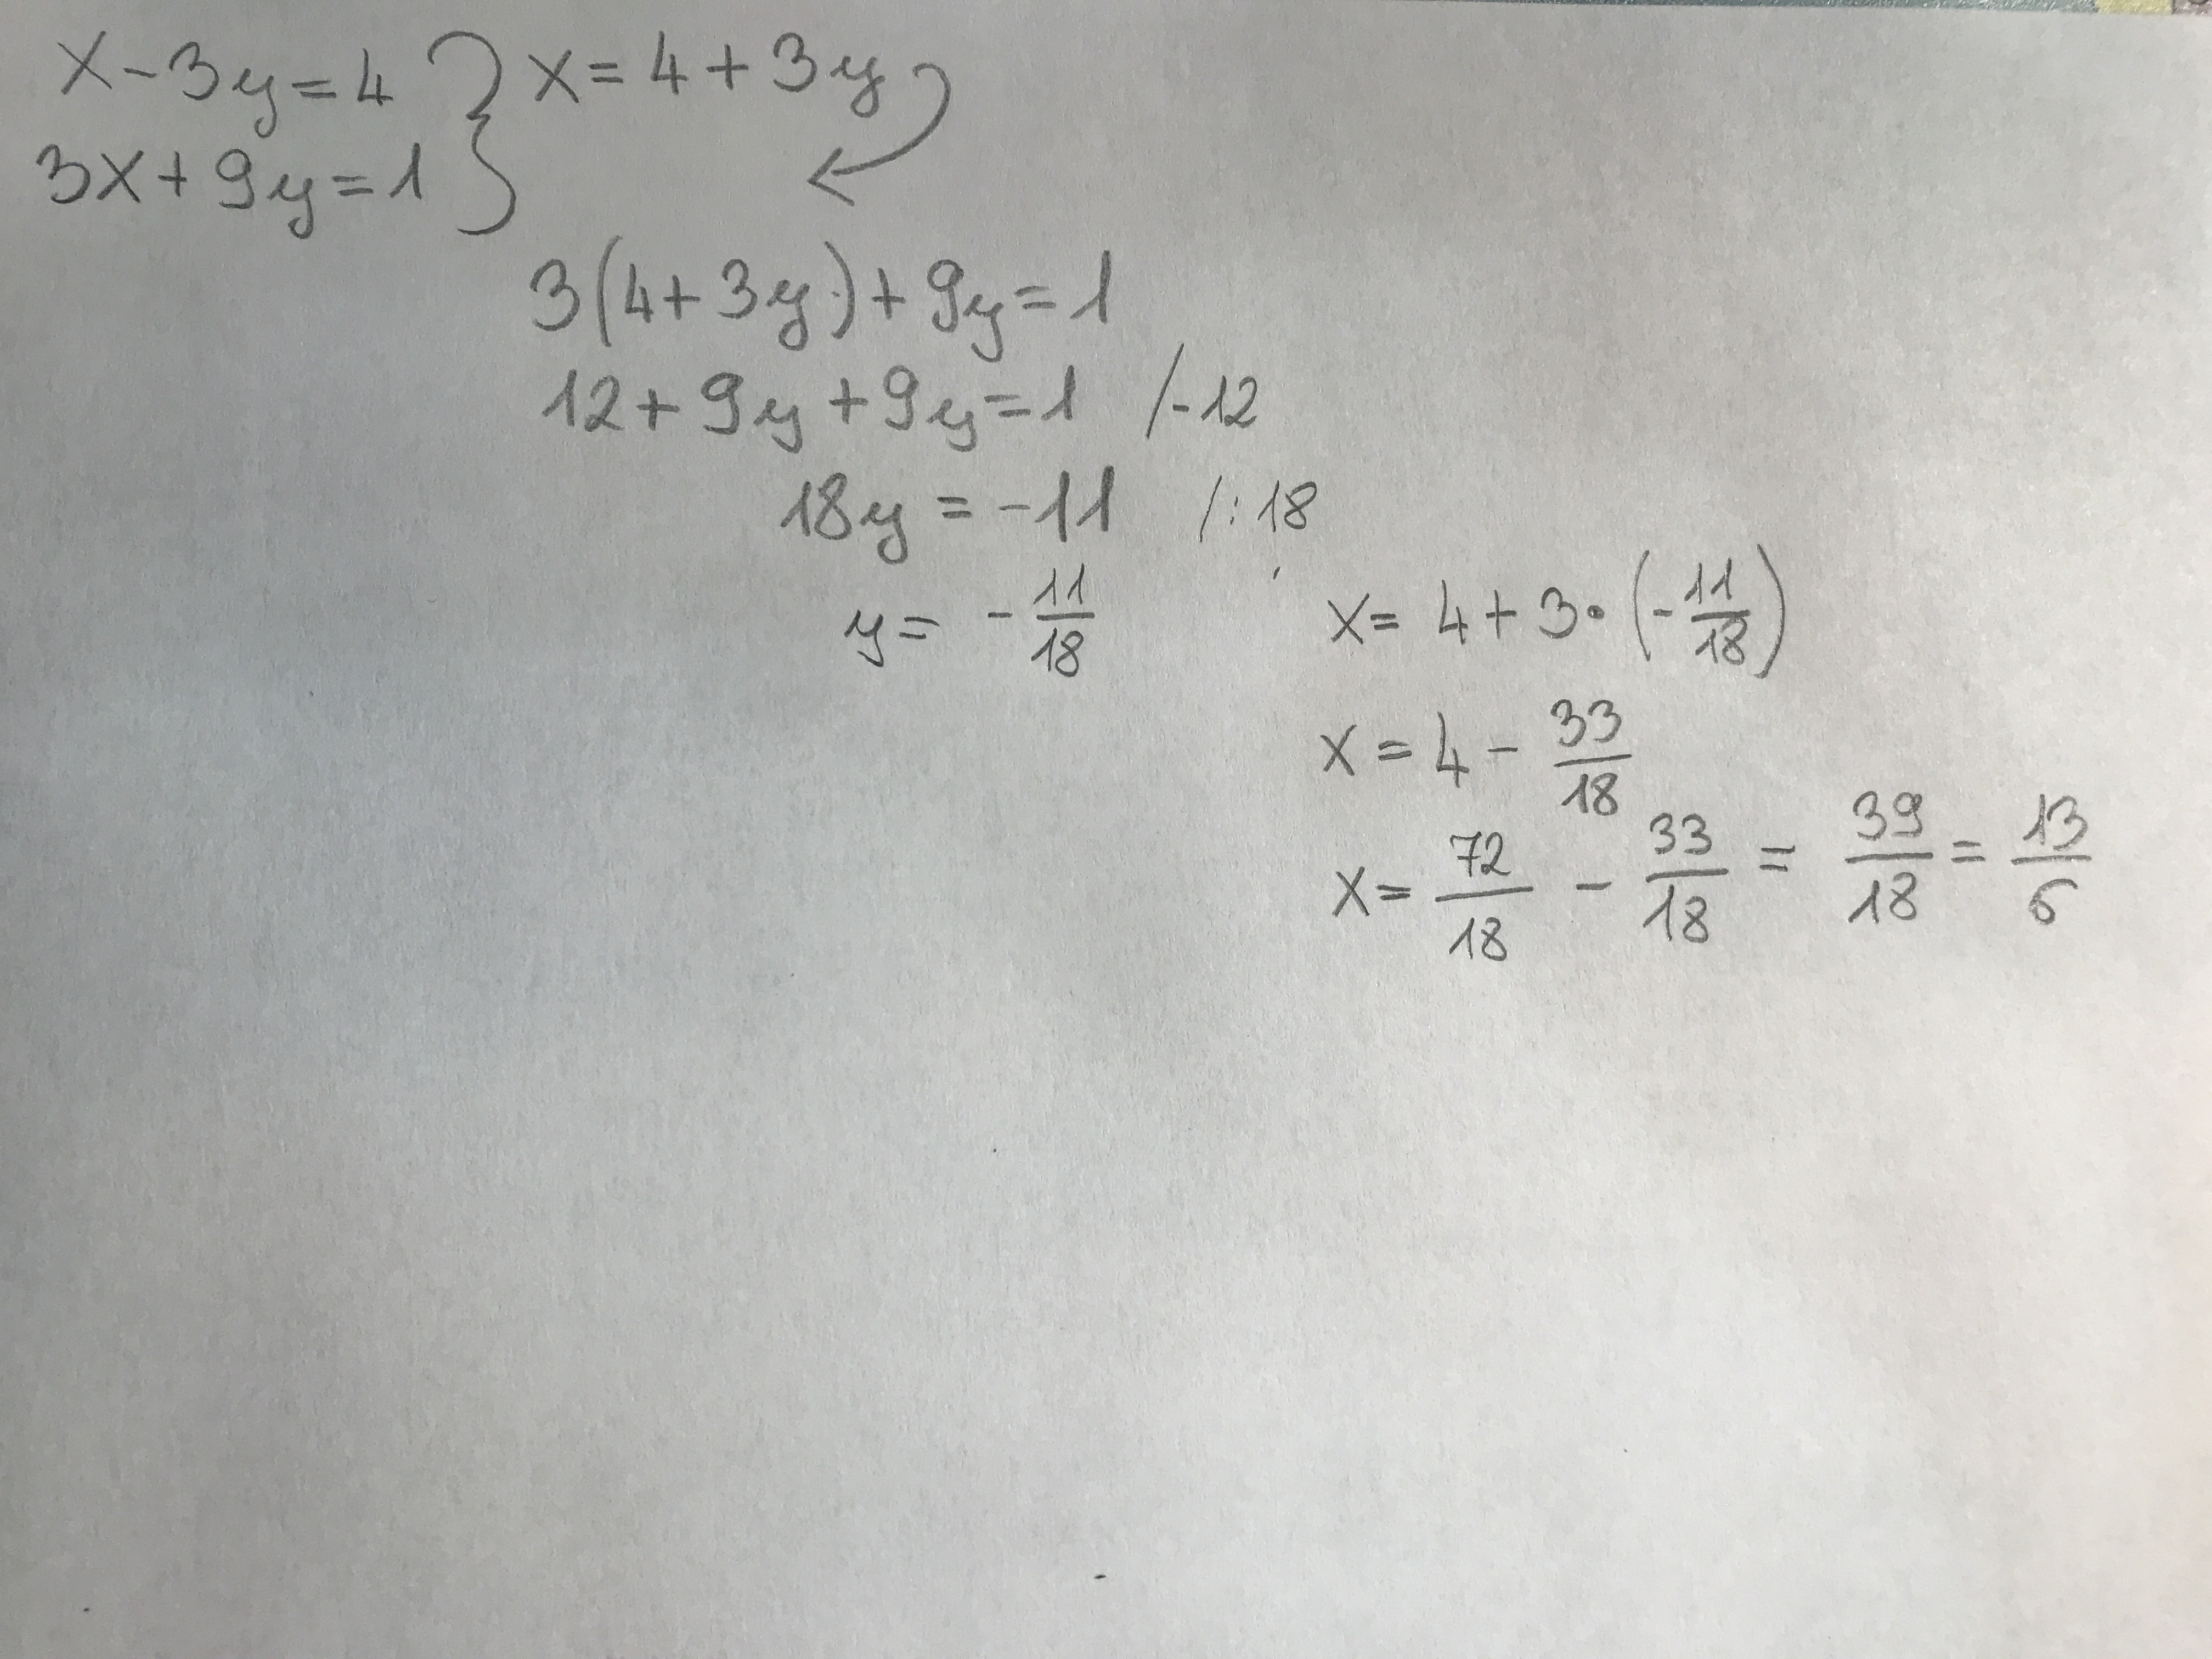 x-3y=4 } x=4+3y
3x+9y=1
3(4+3y)+9y=1
12+9y+9y=1 /-12
18y=-11 /:18
y= -11/18
x= 4+3·(-11/18)
x=4-33/18
x=72/18-33/18=39/18=13/6